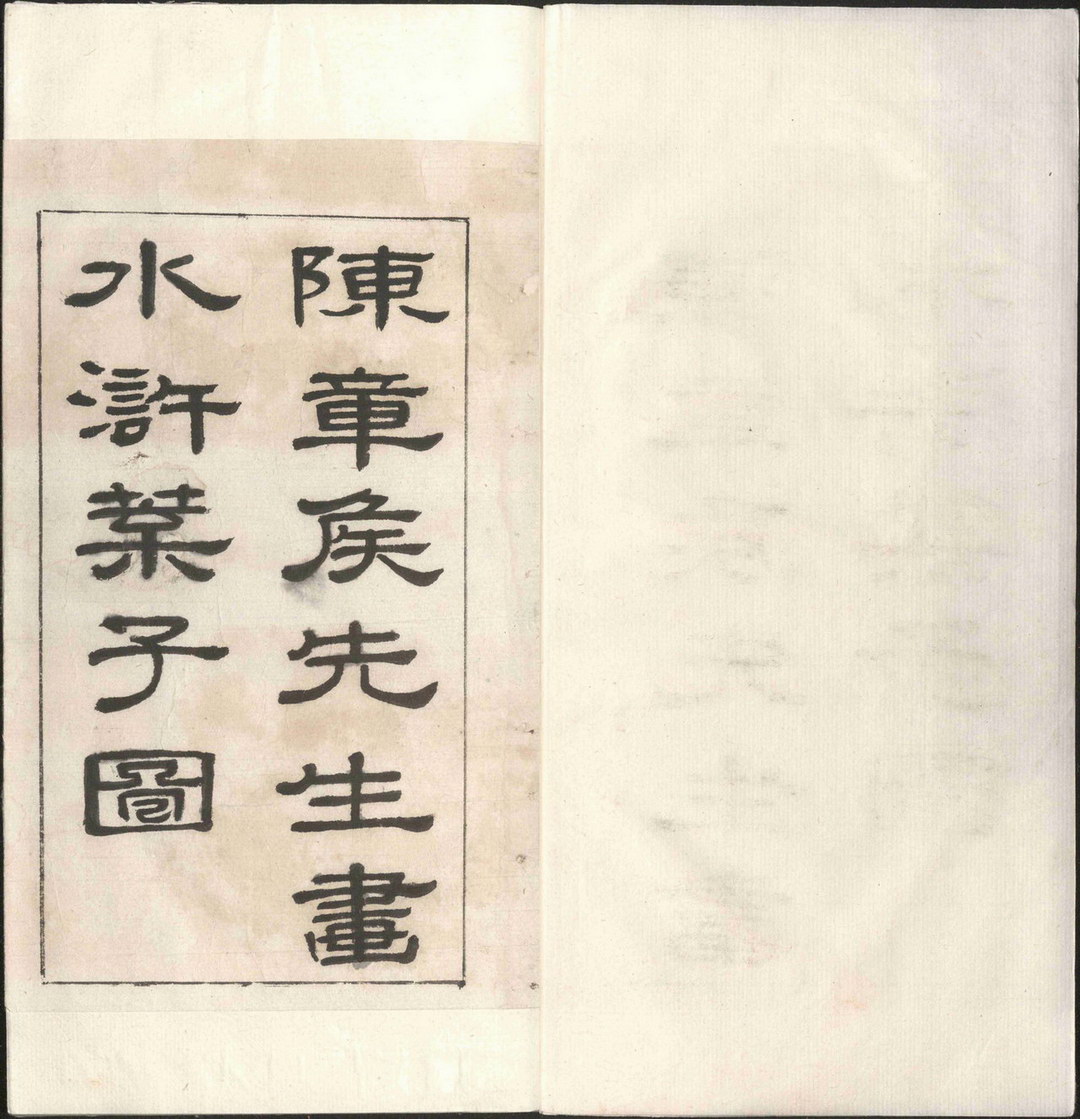 陳章侯先生畫
水滸葉子圖